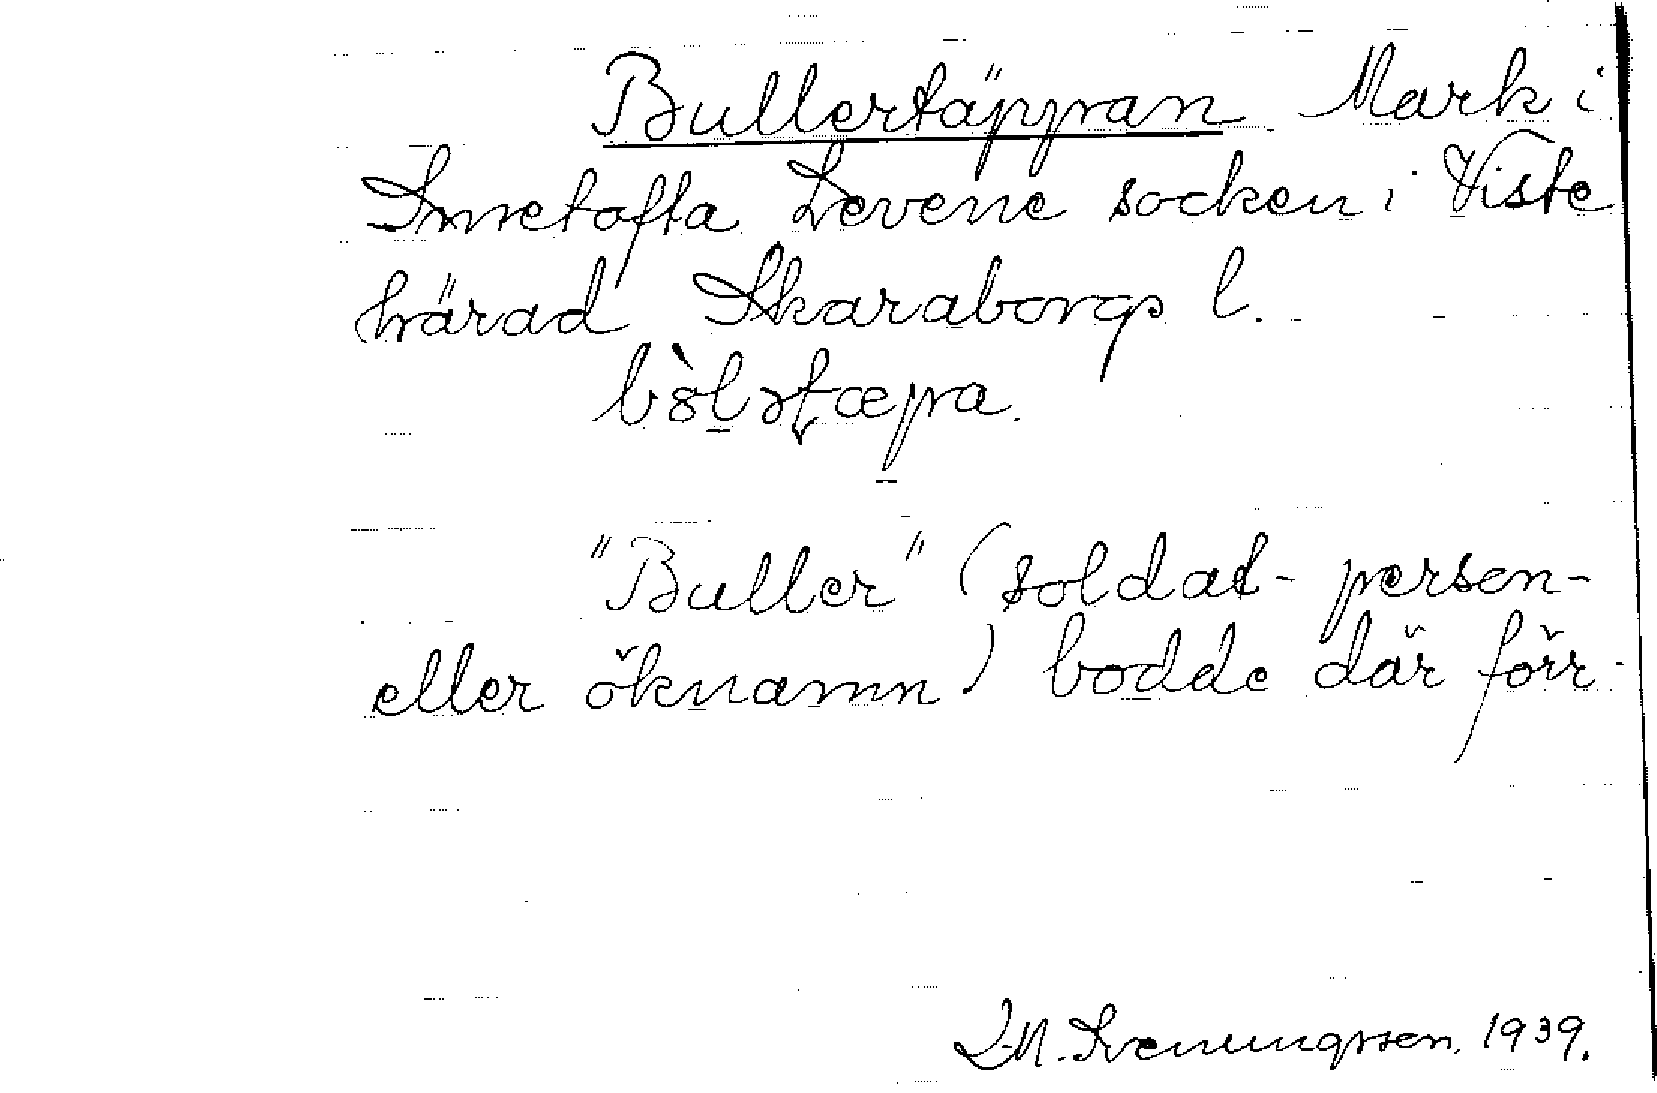 Bullertäppan Mark i
Smetofta Levene socken i Viste
härad Skaraborgs l.
"Buller" (soldat- person-
eller öknamn) bodde där förr.
Sveningsson. 1939.